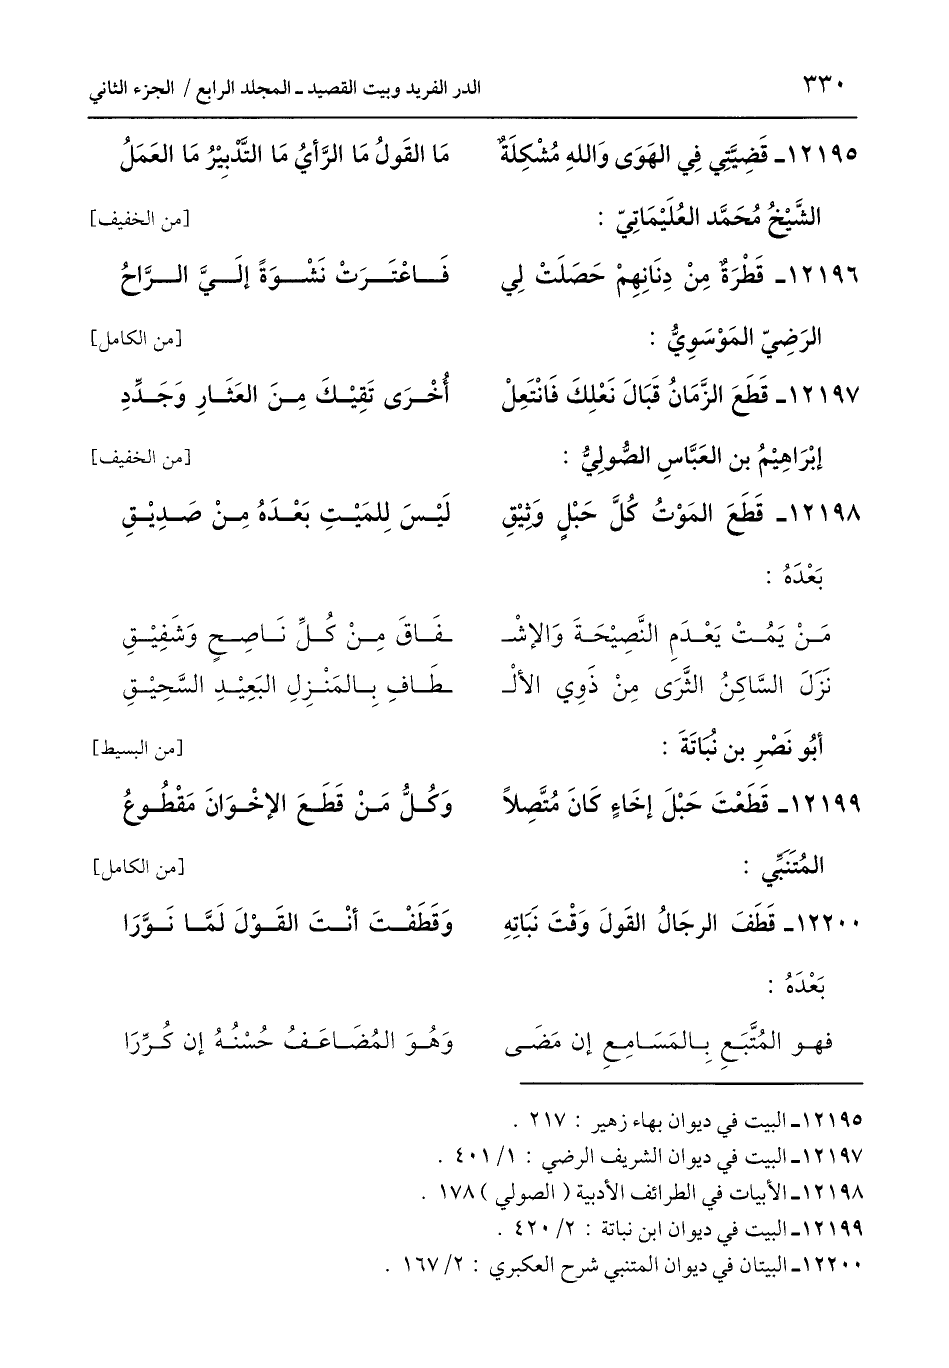 ٣٣٠ الدر الفريد وبيت القصيد ـ المجلد الرابع / الجزء الثاني
١٢١٩٥ـ قَضِيَّتِي فِي الهَوَى وَاللهِ مُشْكِلَةٌ مَا القَولُ مَا الرَّأيُ مَا التَّدْبِيْرُ مَا العَمَلُ
الشَّيْخُ مُحَمَّد العُلَيْمَاتِيّ : [من الخفيف]
١٢١٩٦ـ قَطْرَةٌ مِنْ دِنَانِهِمْ حَصَلَتْ لِي فَاعْتَرَتْ نَشْوَةً إلَيَّ الرَّاحُ
الرَضِيّ المَوْسَوِيُّ : [من الكامل]
١٢١٩٧ـ قَطَعَ الزَّمَانُ قَبَالَ نَعْلِكَ فَانْتَعِلْ أُخْرَى تَقِيْكَ مِنَ العَثَارِ وَجَدِّدِ
إبْرَاهِيْمُ بن العَبَّاسِ الصُّولِيُّ : [من الخفيف]
١٢١٩٨ـ قَطَعَ المَوْتُ كُلَّ حَبْلٍ وَثِيْقِ لَيْسَ لِلمَيْتِ بَعْدَهُ مِنْ صَدِيْقِ
بَعْدَهُ :
مَنْ يَمُتْ يَعْدَمِ النَّصِيْحَةَ وَالإشْـ ـفَاقَ مِنْ كُلِّ نَاصِحٍ وَشَفِيْقِ
نَزَلَ السَّاكِنُ الثَّرَى مِنْ ذَوِي الألْـ ـطَافِ بِالمَنْزِلِ البَعِيْدِ السَّحِيْقِ
أبُو نَصْرِ بن نُبَاتَةَ : [من البسيط]
١٢١٩٩ـ قَطَعْتَ حَبْلَ إخَاءٍ كَانَ مُتَّصِلاً وَكُلُّ مَنْ قَطَعَ الإخْوَانَ مَقْطُوعُ
المُتَنَبِّي : [من الكامل]
١٢٢٠٠ـ قَطَفَ الرجَالُ القَولَ وَقْتَ نَبَاتِهِ وَقَطَفْتَ أنْتَ القَوْلَ لَمَّا نَوَّرَا
بَعْدَهُ :
فهو المُتَّبَعِ بِالمَسَامِعِ إن مَضَى وَهُوَ المُضَاعَفُ حُسْنُهُ إن كُرِّرَا
١٢١٩٥ـ البيت في ديوان بهاء زهير : ٢١٧ .
١٢١٩٧ـ البيت في ديوان الشريف الرضي : ١/ ٤٠١ .
١٢١٩٨ـ الأبيات في الطرائف الأدبية ( الصولي ) ١٧٨ .
١٢١٩٩ـ البيت في ديوان ابن نباتة : ٢/ ٤٢٠ .
١٢٢٠٠ـ البيتان في ديوان المتنبي شرح العكبري : ٢/ ١٦٧ .